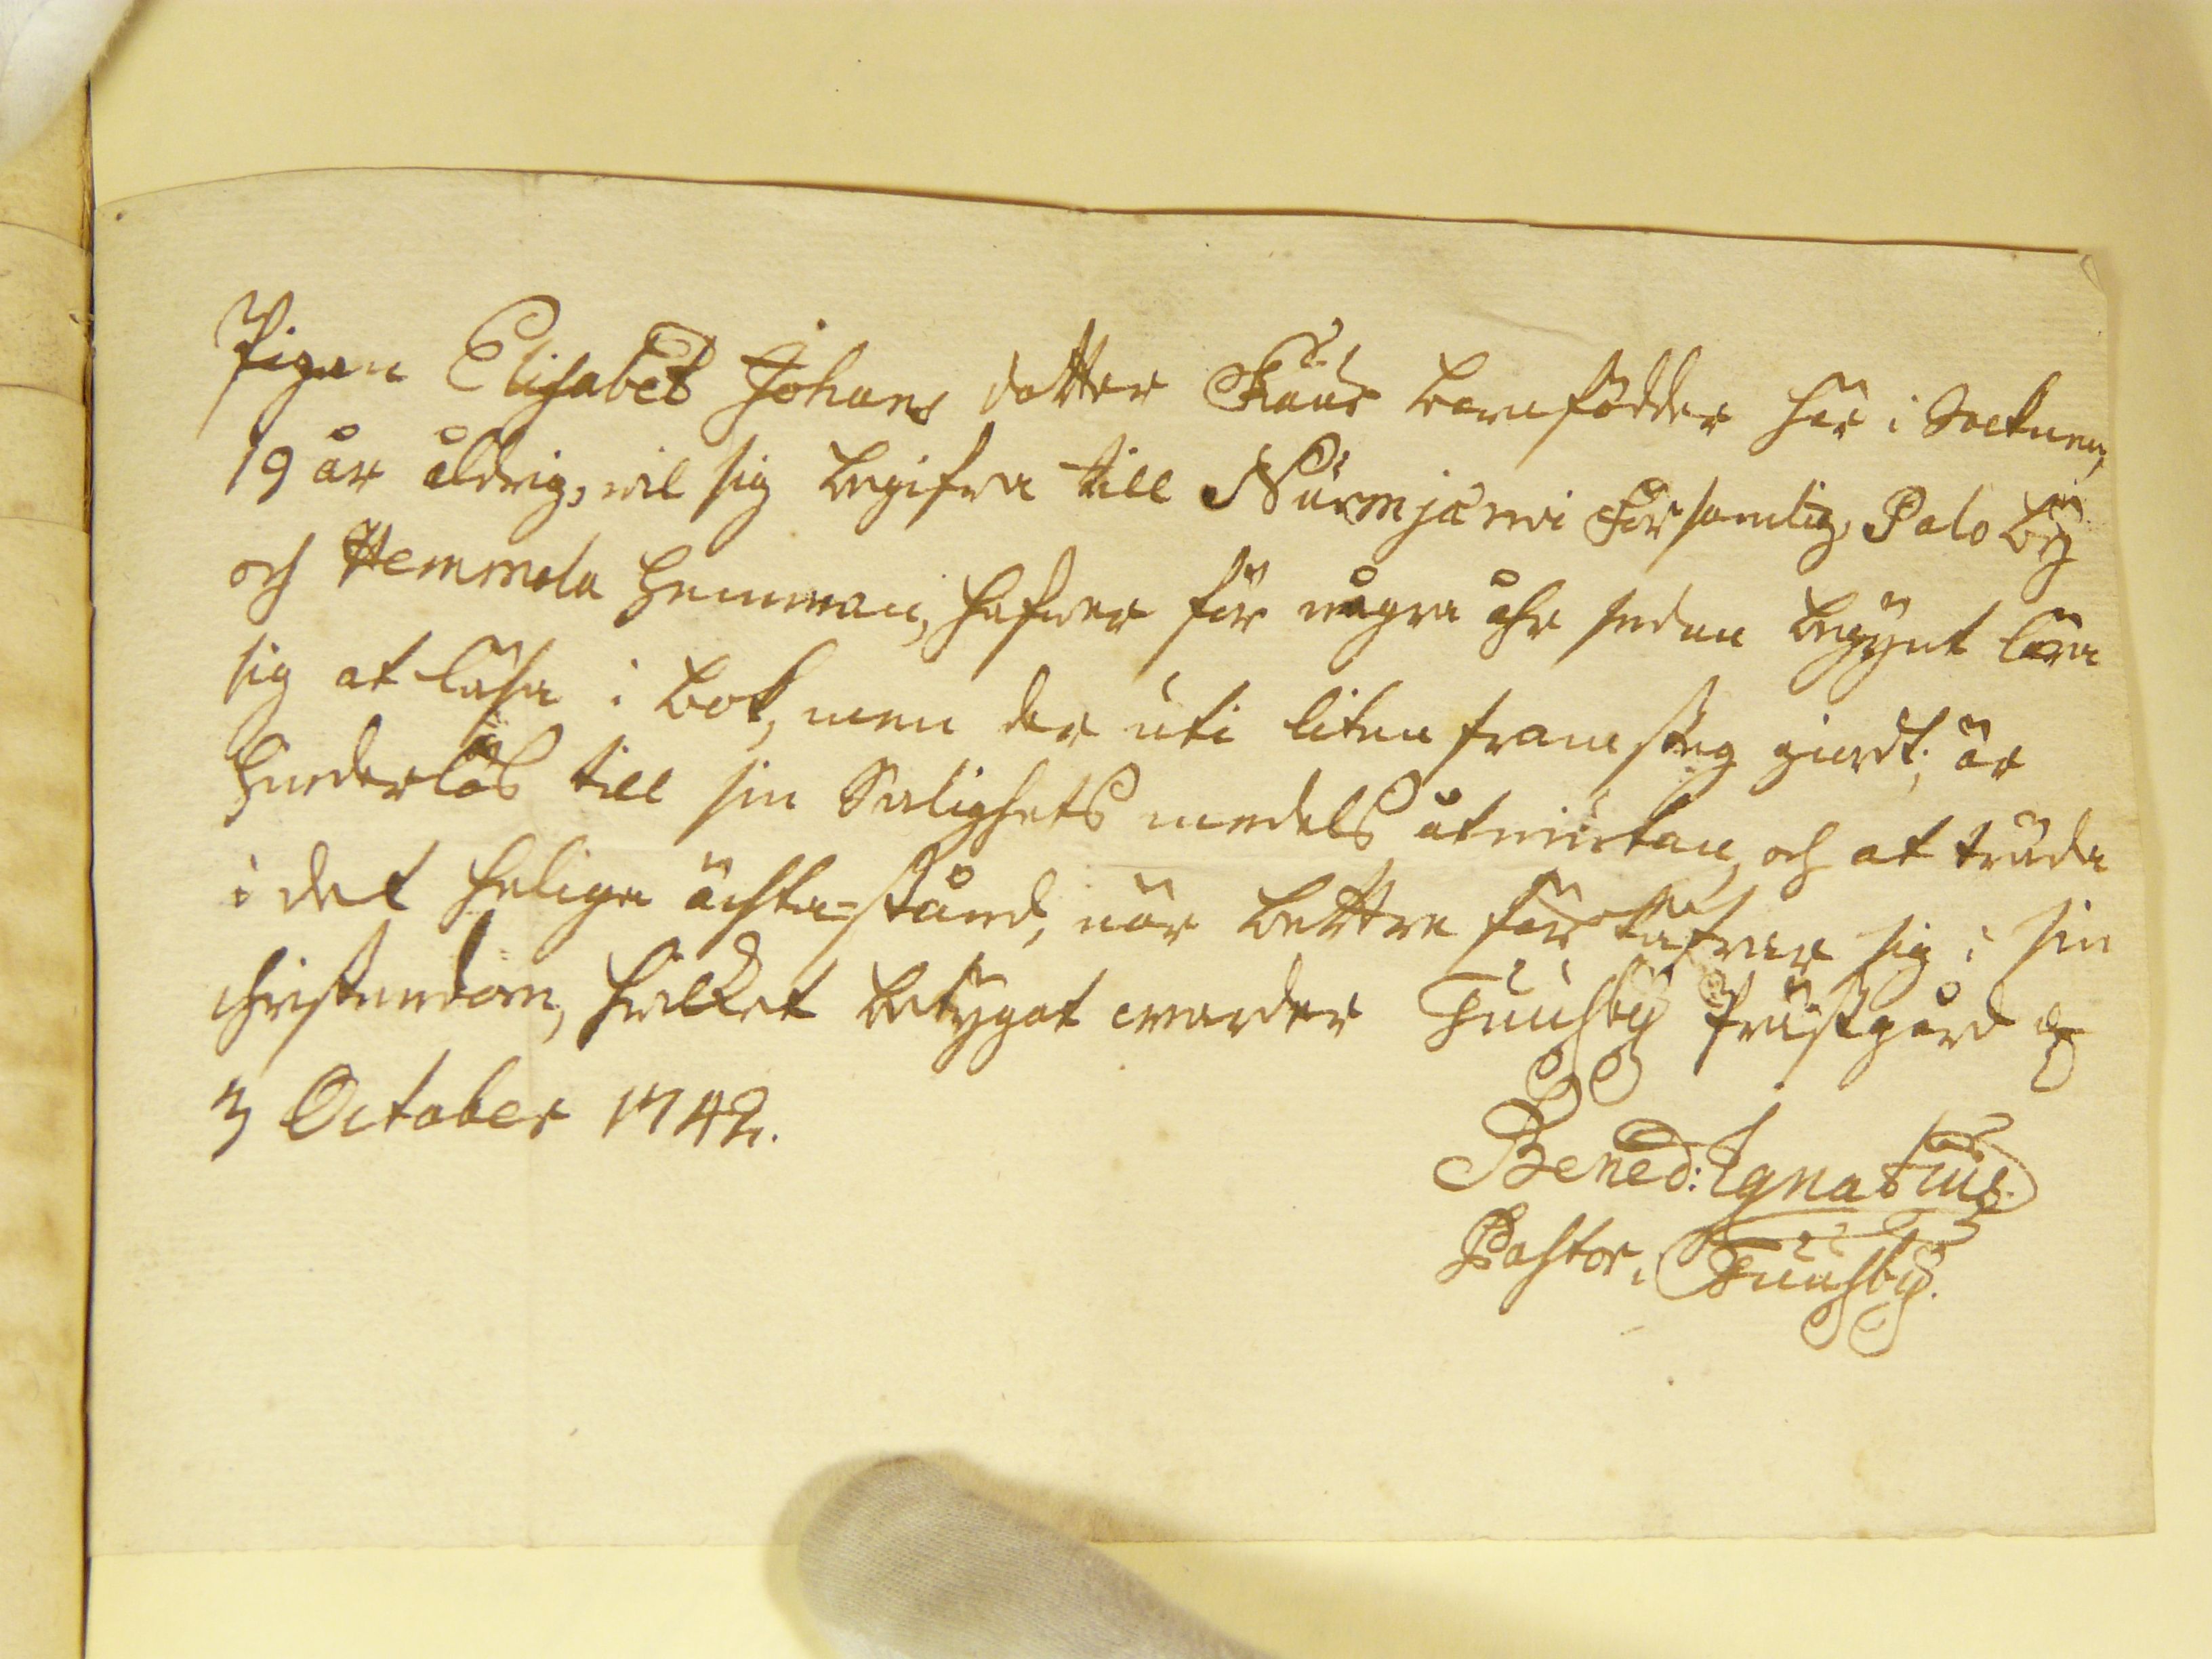 Pigan Elisabet Johans dotter barnfödder här i Socknen,
19 år åldrig, vil sig begifva till Nurmjärvi Församling, Palo by
och Hemmola hemman, hafver för några åhr sedan begynt lära
sig at läsa i bok, men der uti liten framsteg giordt; är
hinderlös till sin Salighets medels åtniutan, och at träda
i det heliga ächta-stånd, när bettre för sig i sin
christendom, hvilket betygat warder Tuusby Prästgård d
3 October 1742.
Bened: Ignatius
Pastor i Tuusby.